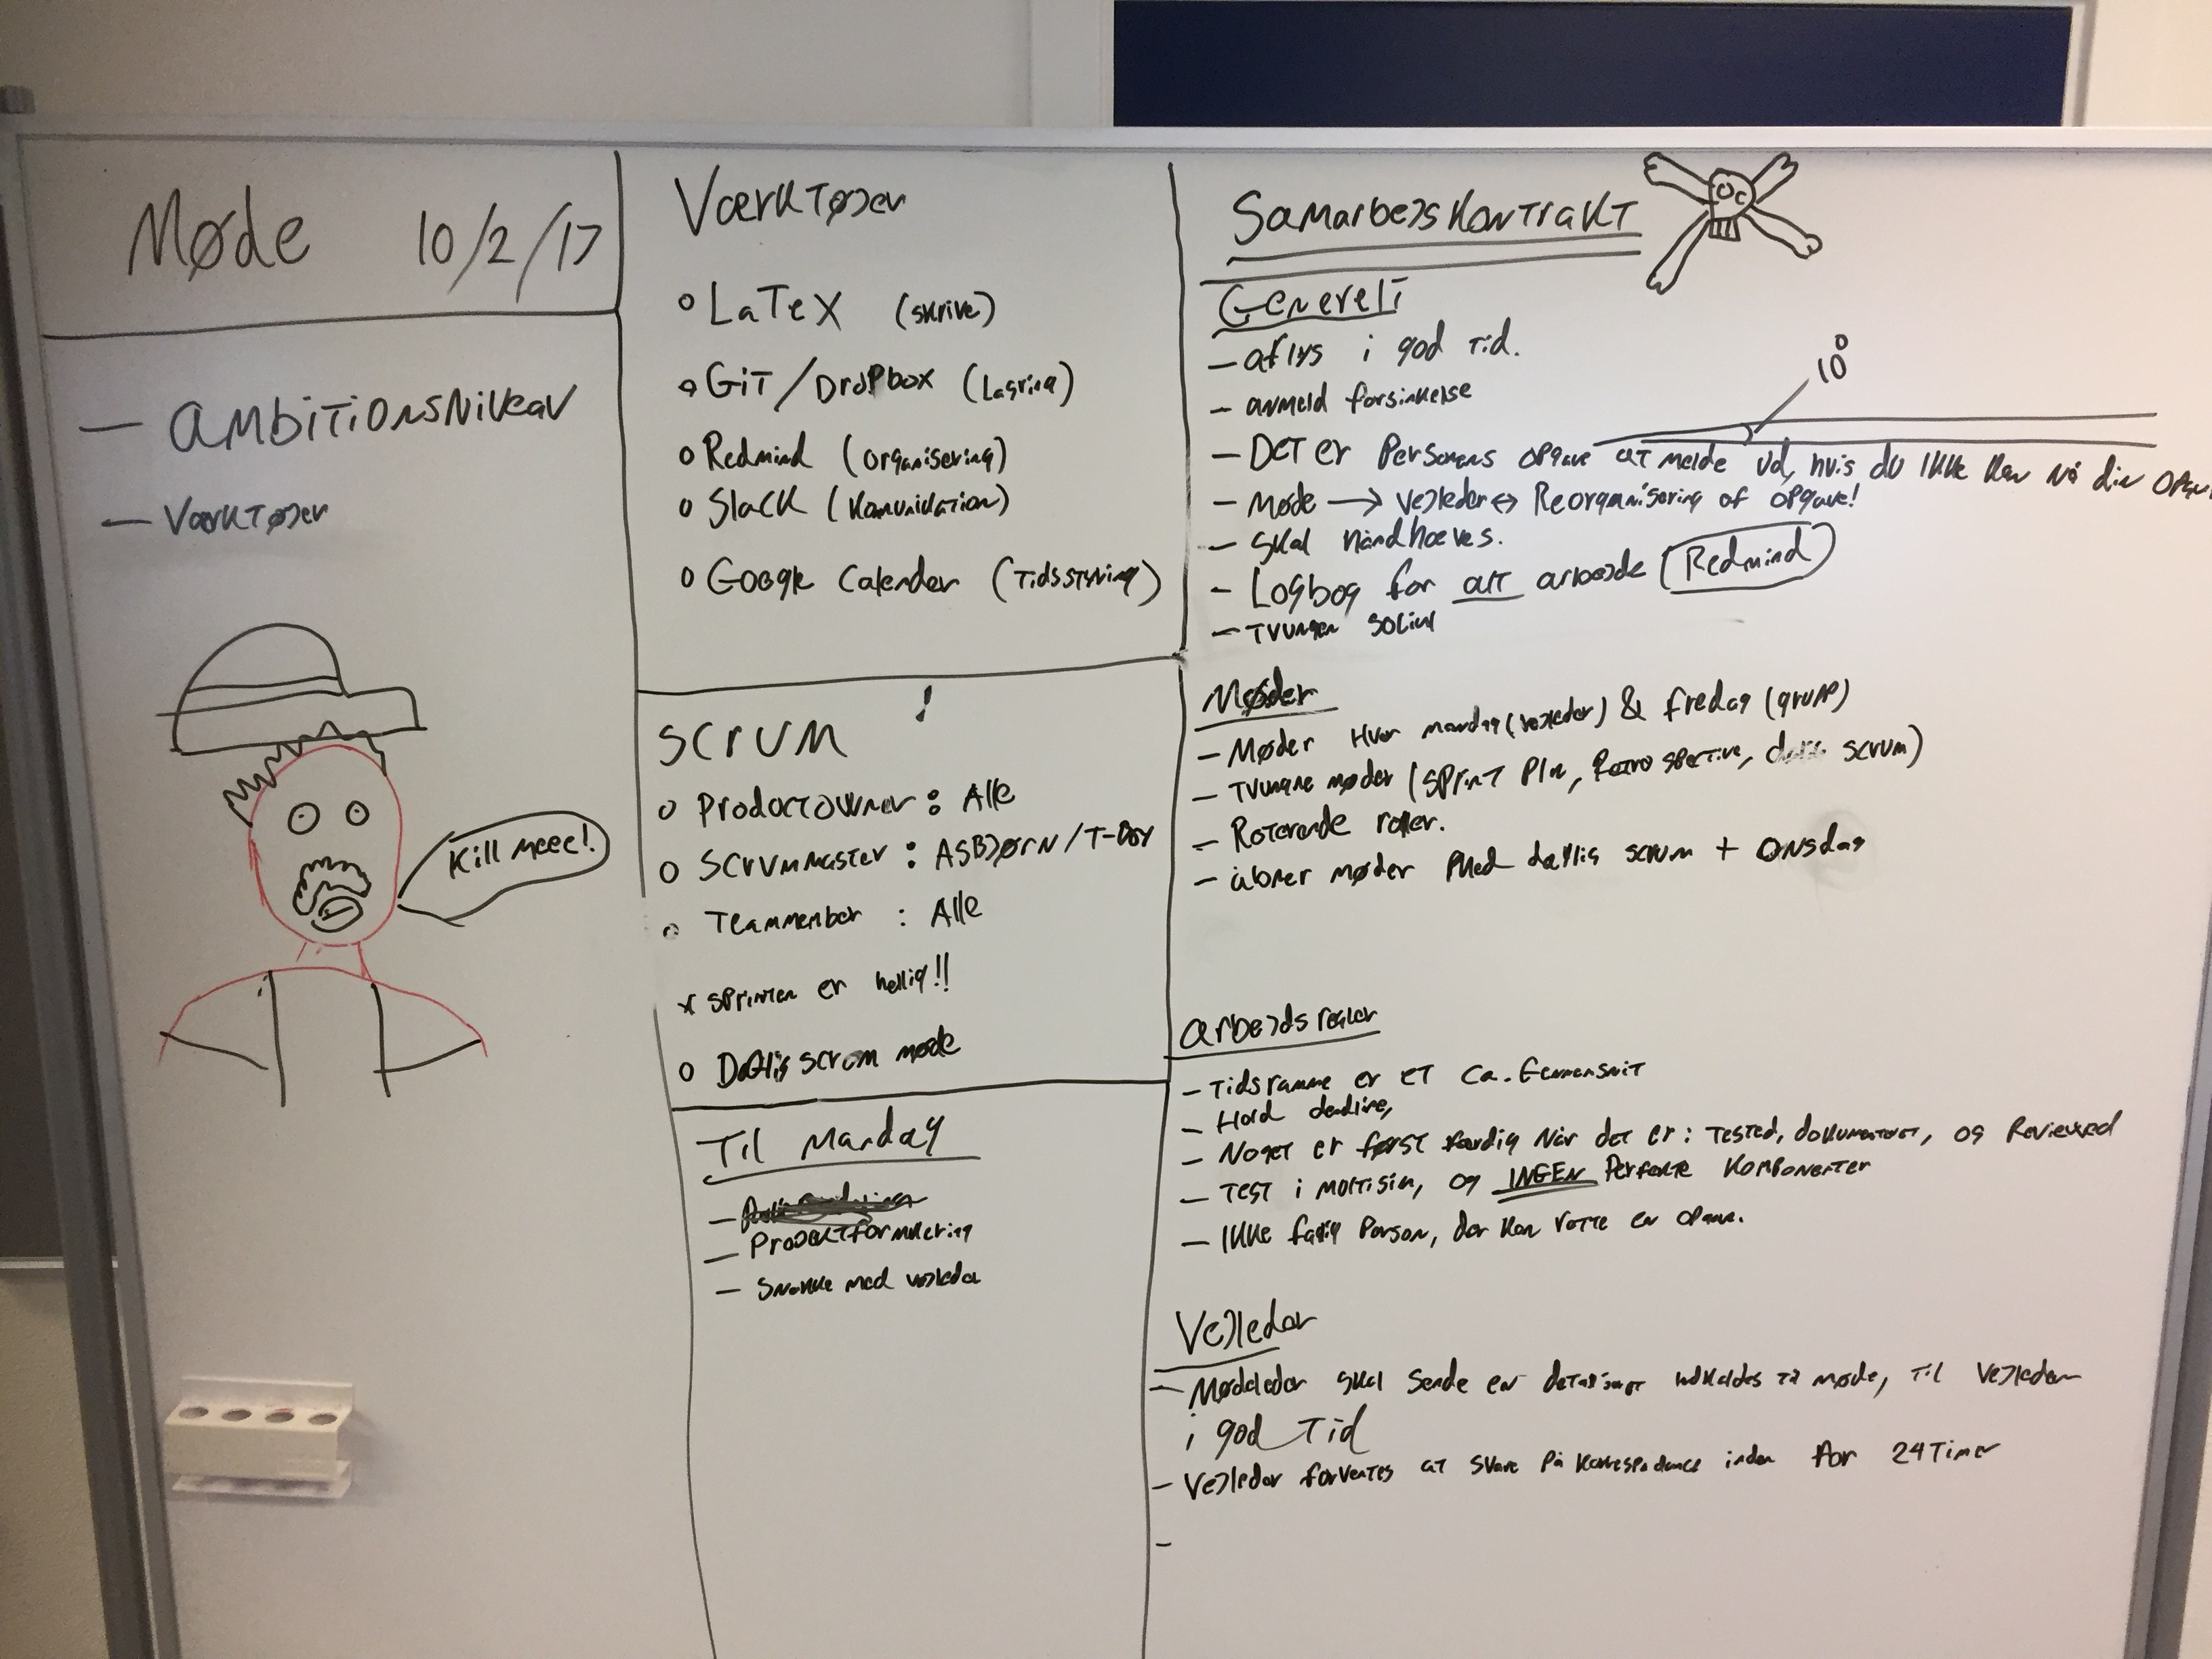 Møde 10/2/17
- AMBITIONSNIVEAU
- Værktøjer
Kill meee!
Værktøjer
o LaTeX (skrive)
o GiT/DropBox (Lagring)
o Redmind (organisering)
o Slack (Komunikation)
o Google Calender (Tidsstyring)
SCRUM
o Productowner: Alle
o Scrummaster: ASBJØRN/T-Boy
o Teammember: Alle
* sprinten er hellig!!
o Daglig scrum møde
Til Mandag
- Projektformulering
- Snakke med vejleder
Samarbejskontrakt
Generelt
- aflys i god tid.
- anmeld forsinkelse
10°
- Det er Personens opgave at melde ud, hvis du ikke kan nå din
- Møde → vejleder ↔ Reorganisering af opgave!
- Skal håndhæves.
- Logbog for alt arbejde (Redmind)
- Tvungen social
Møder
- Møder Hver mandag (vejleder) & fredag (grupp)
- Tvungne møder (Sprint Plan, Retrospective, scrum)
- Roterende roller.
- åbner møder Med daglig scrum + Onsdag
arbejdsregler
- Tidsramme er et ca. Gennemsnit
- Hold deadline,
- Noget er først færdig når det er: Tested, dokumenteret, og Reviewed
- Test i multisim, og INGEN Perfekte Komponenter
- Ikke Person, der kan rette en opgave.
Vejleder
- Mødeleder skal sende en detaljeret indkaldes til møde, til Vejleder
i god Tid
- Vejleder forventes at svare på inden for 24 Timer
-